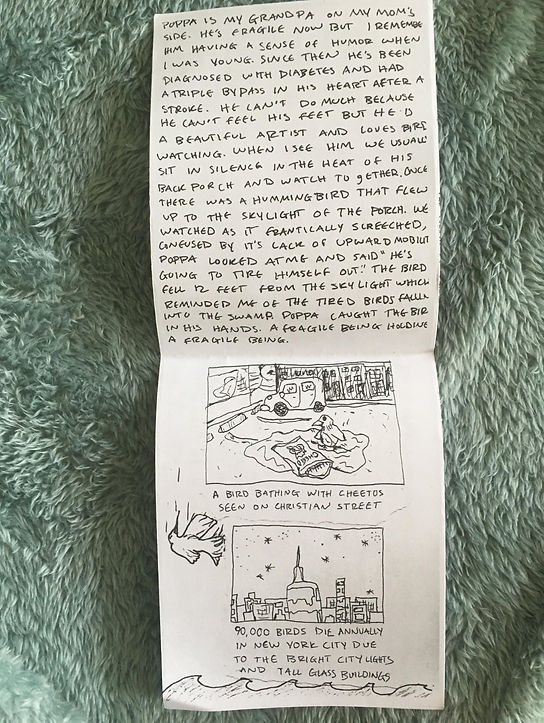 POPPA IS MY GRANDPA ON MY MOM'S
SIDE. HE'S FRAGILE NOW BUT I REMEMBE
HIM HAVING A SENSE OF HUMOR WHEN
I WAS YOUNG. SINCE THEN HE'S BEEN
DIAGNOSED WITH DIABETES AND HAD
A TRIPLE BYPASS IN HIS HEART AFTER A
STROKE. HE CAN'T DO MUCH BECAUSE
HE CAN'T FEEL HIS FEET BUT HE IS
A BEAUTIFUL ARTIST AND LOVES BIRD
WATCHING. WHEN I SEE HIM WE USUALL
SIT IN SILENCE IN THE HEAT OF HIS
BACK PORCH AND WATCH TOGETHER. ONCE
THERE WAS A HUMMINGBIRD THAT FLEW
UP TO THE SKYLIGHT OF THE PORCH. WE
WATCHED AS IT FRANTICALLY SCREECHED,
CONFUSED BY IT'S LACK OF UPWARD MOBILIT
POPPA LOOKED AT ME AND SAID "HE'S
GOING TO TIRE HIMSELF OUT." THE BIRD
FELL 12 FEET FROM THE SKYLIGHT WHICH
REMINDED ME OF THE TIRED BIRDS FALLIN
INTO THE SWAMP. POPPA CAUGHT THE BIR
IN HIS HANDS. A FRAGILE BEING HOLDING
A FRAGILE BEING.
A BIRD BATHING WITH CHEETOS
SEEN ON CHRISTIAN STREET
90,000 BIRDS DIE ANNUALLY
IN NEW YORK CITY DUE
TO THE BRIGHT CITY LIGHTS
AND TALL GLASS BUILDINGS